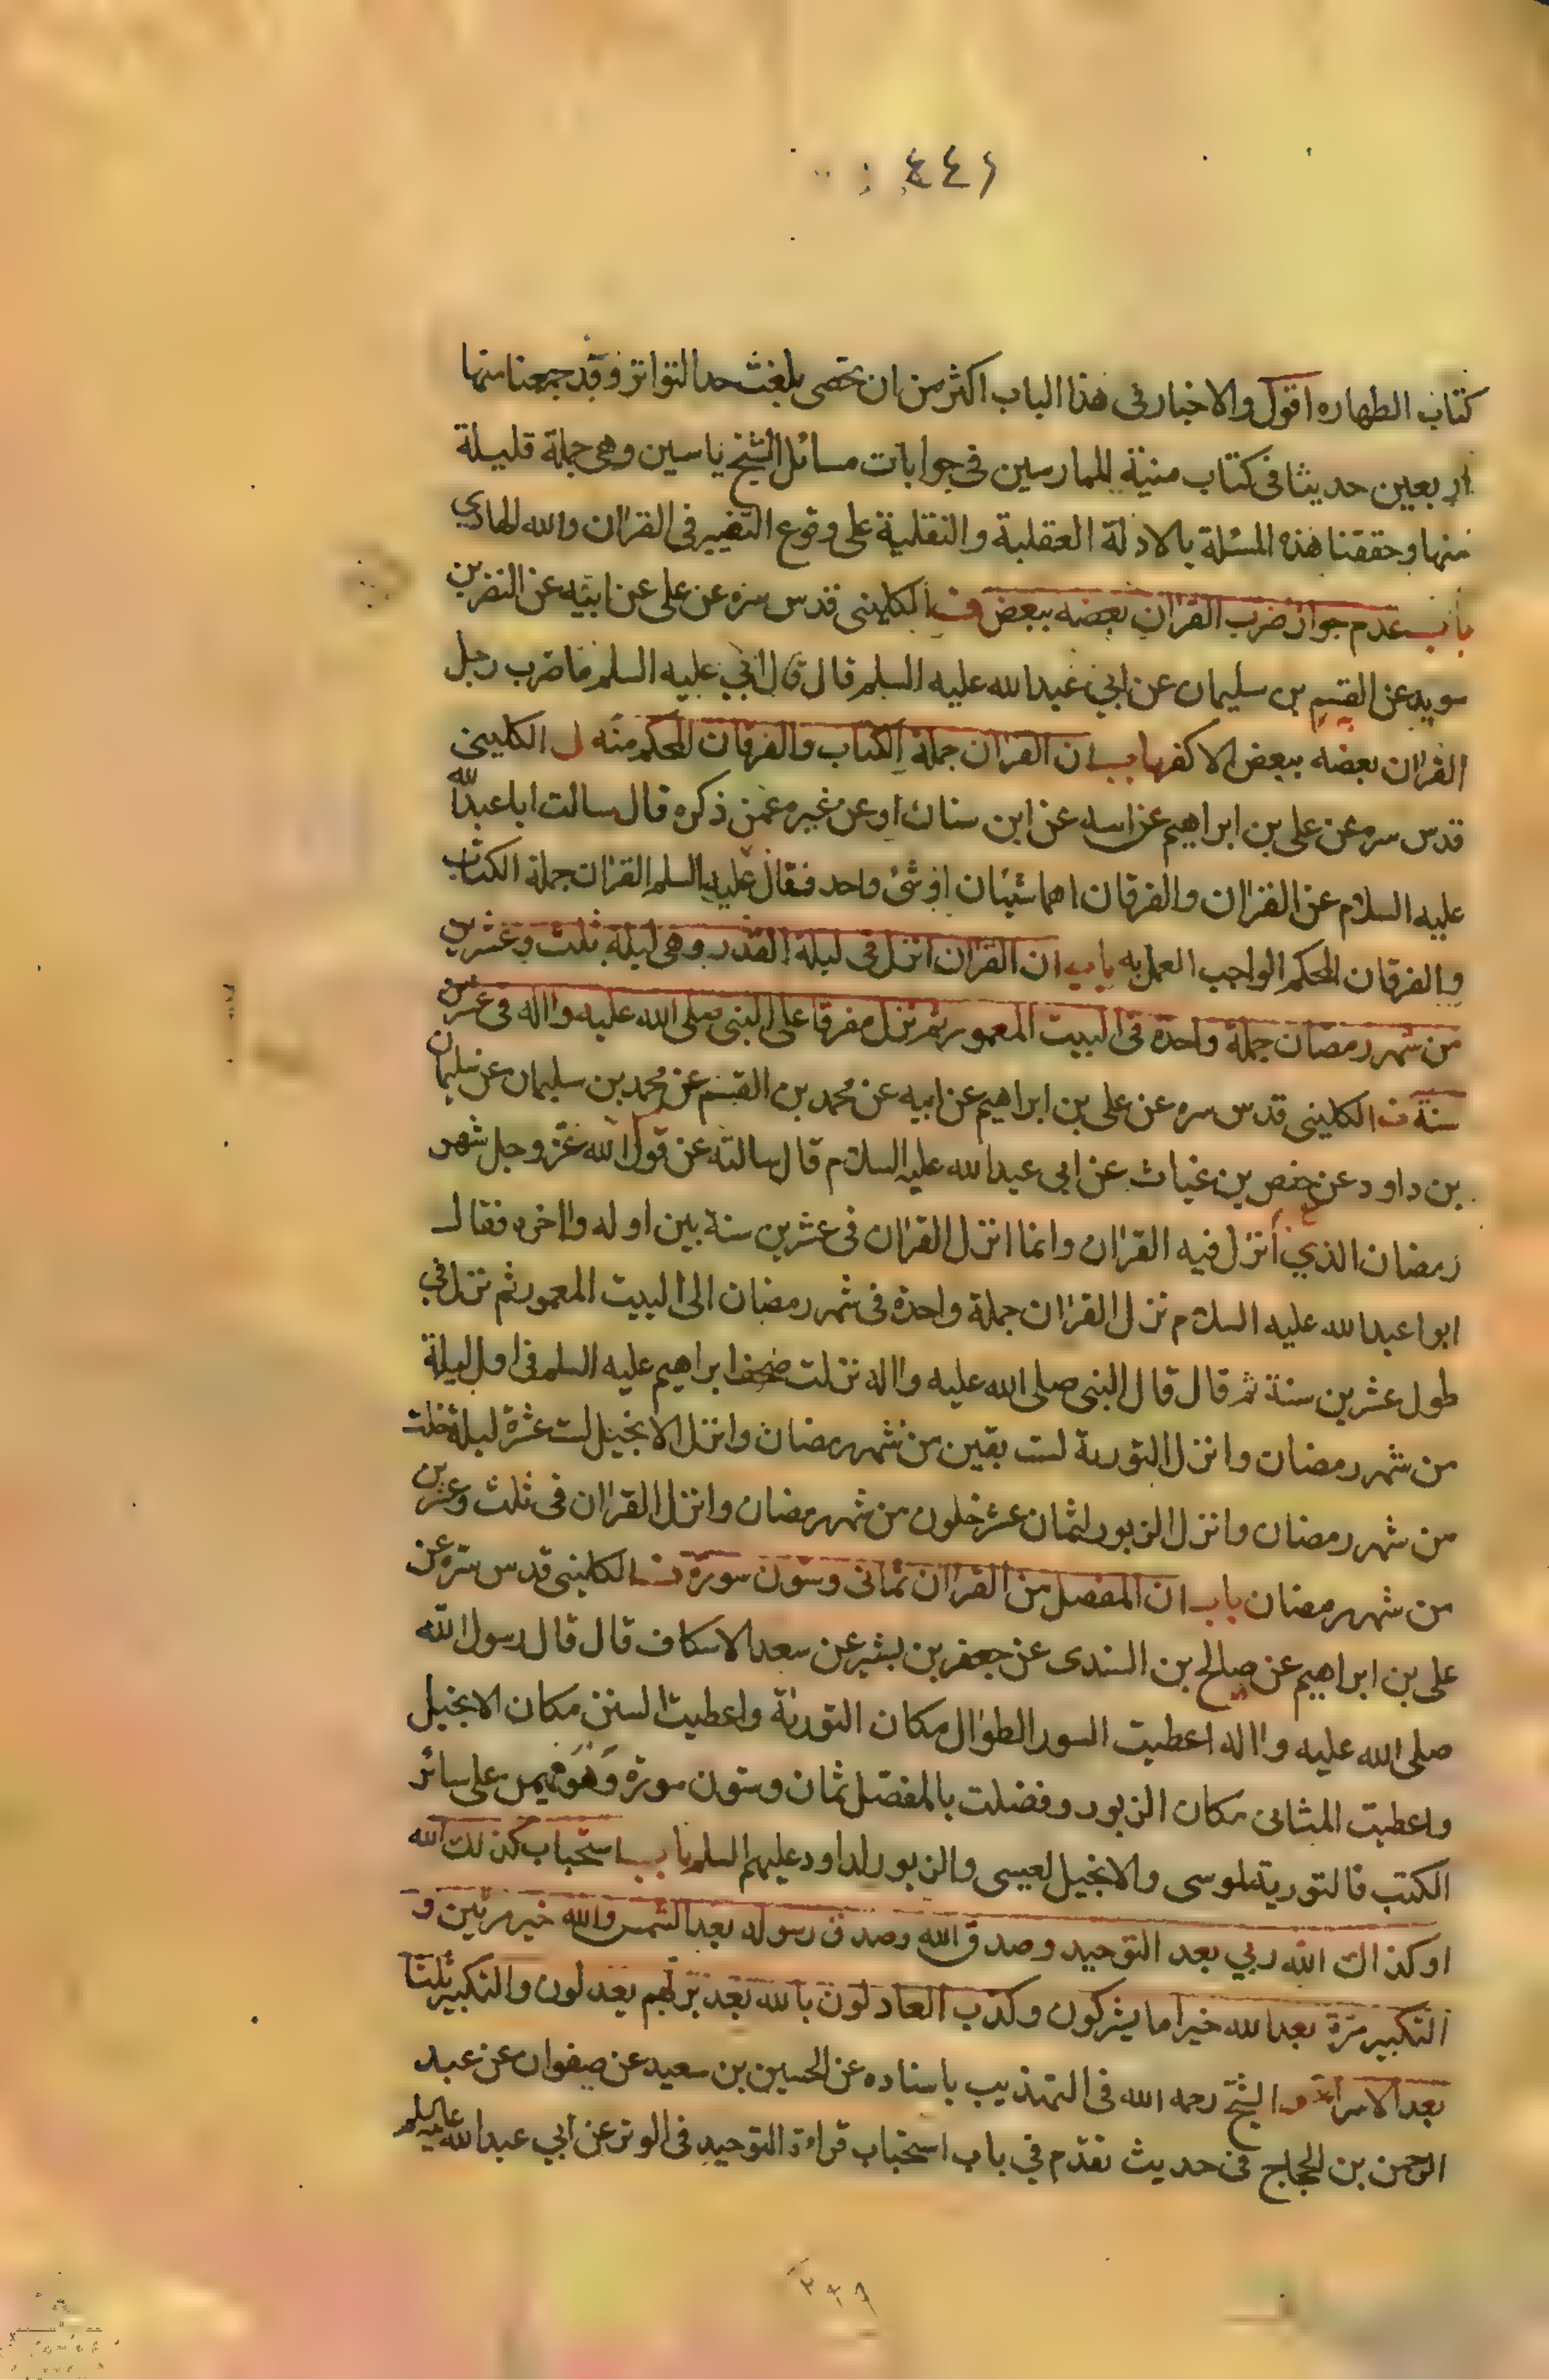 ٤٤٦
كتاب الطهاره اقول والاخبار في هذا الباب اكثر من ان تحصى بلغت حد التواتر وقد جمعنا منها
اربعين حديثا في كتاب منية الممارسين في جوابات مسائل الشيخ ياسين وهي جملة قليلة
منها وحققنا هذه المسئلة بالادلة العقلية والنقلية على وقوع التغيير في القران والله الهادي
باب عدم جواز ضرب القران بعضه ببعض الكليني قدس سره عن علي عن ابيه عن النضر بن
سويد عن القسم بن سليمان عن ابي عبدالله عليه السلم قال قال ابي عليه السلم ما ضرب رجل
القران بعضه ببعض الا كفر باب ان القران جملة الكتاب والفرقان المحكم منه الكليني
قدس سره عن علي بن ابراهيم عن ابيه عن ابن سنان او عن غيره عمن ذكره قال سالت ابا عبدالله
عليه السلام عن القران والفرقان اهما شيئان او شئ واحد فقال عليه السلم القران جملة الكتاب
والفرقان المحكم الواجب العمل به باب ان القران انزل في ليلة القدر وهي ليلة ثلث وعشرين
من شهر رمضان جملة واحدة في البيت المعمور ثم نزل مفرقا على النبي صلى الله عليه واله في عشرين
سنة الكليني قدس سره عن علي بن ابراهيم عن ابيه عن محمد بن القسم عن محمد بن سليمان عن سليمان
بن داود عن حفص بن غياث عن ابي عبدالله عليه السلام قال سالته عن قول الله عز وجل شهر
رمضان الذي أنزل فيه القران وانما انزل القران في عشرين سنة بين اوله واخره فقال
ابوا عبدالله عليه السلام نزل القران جملة واحدة في شهر رمضان الى البيت المعمور ثم نزل في
طول عشرين سنة ثم قال قال النبي صلى الله عليه واله نزلت صحف ابراهيم عليه السلم في اول ليلة
من شهر رمضان وانزل التورية لست بقين من شهر رمضان وانزل الانجيل لثلث عشرة ليلة خلت
من شهر رمضان وانزل الزبور لثمان عشر خلون من شهر رمضان وانزل القران في ثلث وعشرين
من شهر رمضان باب ان المفصل من القران ثماني وستون سورة الكليني قدس سره عن
علي بن ابراهيم عن صالح بن السندى عن جعفر بن بشير عن سعد الاسكاف قال قال رسول الله
صلى الله عليه واله اعطيت السور الطوال مكان التورية واعطيت السنن مكان الانجيل
واعطيت المثاني مكان الزبور وفضلت بالمفصل ثمان وستون سورة وهو مهيمن على سائر
الكتب فالتورية لموسى والانجيل لعيسى والزبور لداود عليهم السلم باب استحباب كذلك الله
او كذاك الله ربي بعد التوحيد وصدق الله وصدق رسوله بعد الشمس والله خير مرتين و
التكبير مرة بعد الله خير اما يشركون وكذب العادلون بالله بعد بربهم يعدلون والتكبير ثلثا
بعد الاسراء الشيخ رحمه الله في التهذيب باسناده عن الحسين بن سعيد عن صفوان عن عبد
الرحمن بن الحجاج في حديث تقدم في باب استحباب قراءة التوحيد في الوتر عن ابي عبدالله عليه السلم